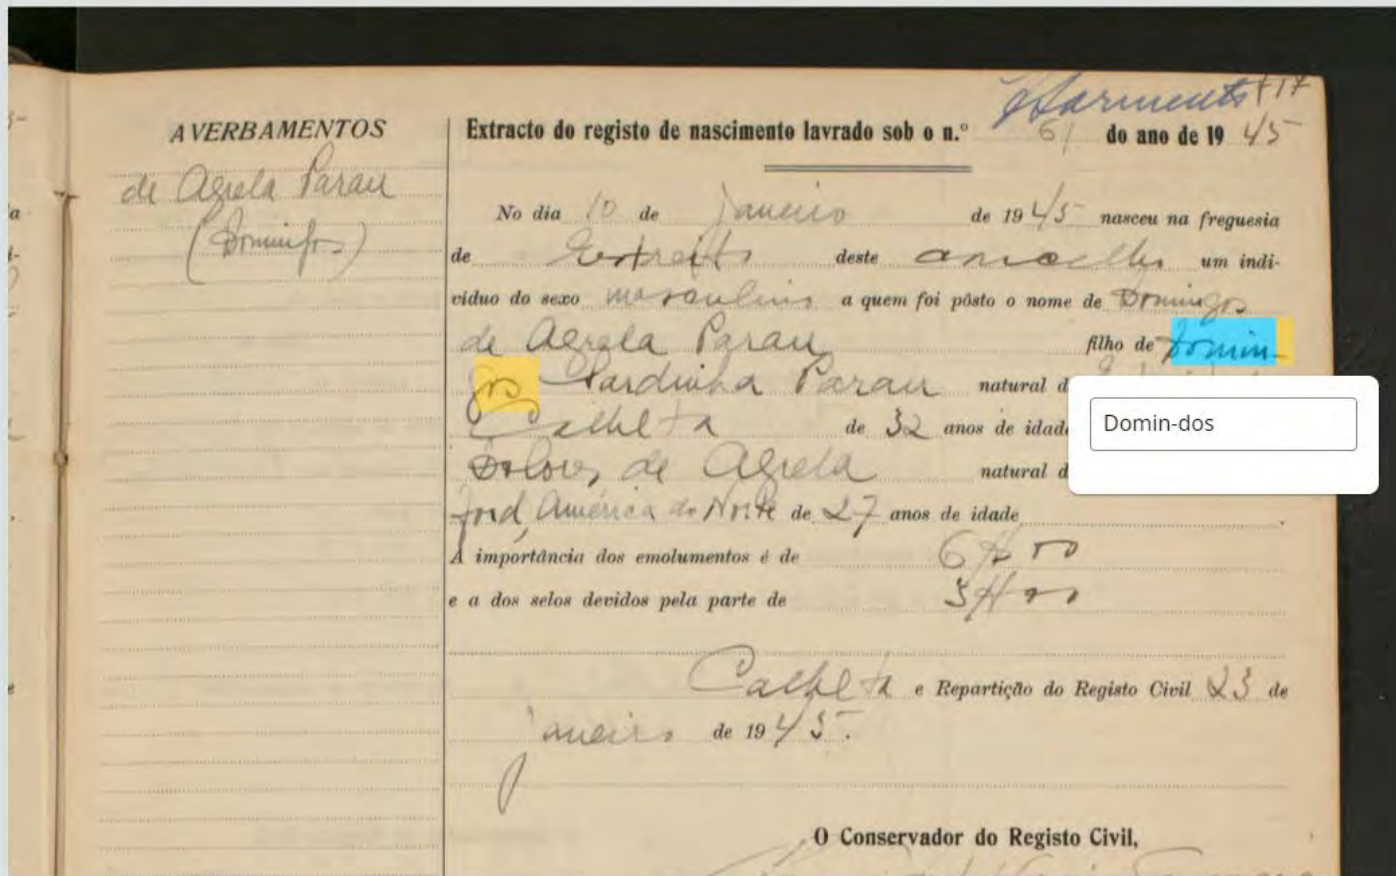 AVERBAMENTOS
de Agrela Parau
(Domingos)
Sarmento
Extracto do registo de nascimento lavrado sob o n.º 61 do ano de 1945
No dia 10 de janeiro de 1945 nasceu na freguesia
de Estreito deste concelho um indi-
viduo do sexo masculino a quem foi pôsto o nome de Domingos
de Agrela Parau filho de Domin-
gos Sardinha Parau natural d
Calheta de 32 anos de idade
Domin-dos
Dolores de Agrela natural d
ford, América do Norte de 27 anos de idade
A importância dos emolumentos é de 6$00
e a dos selos devidos pela parte de 3$00
Calheta e Repartição do Registo Civil 23 de
janeiro de 1945.
O Conservador do Registo Civil,